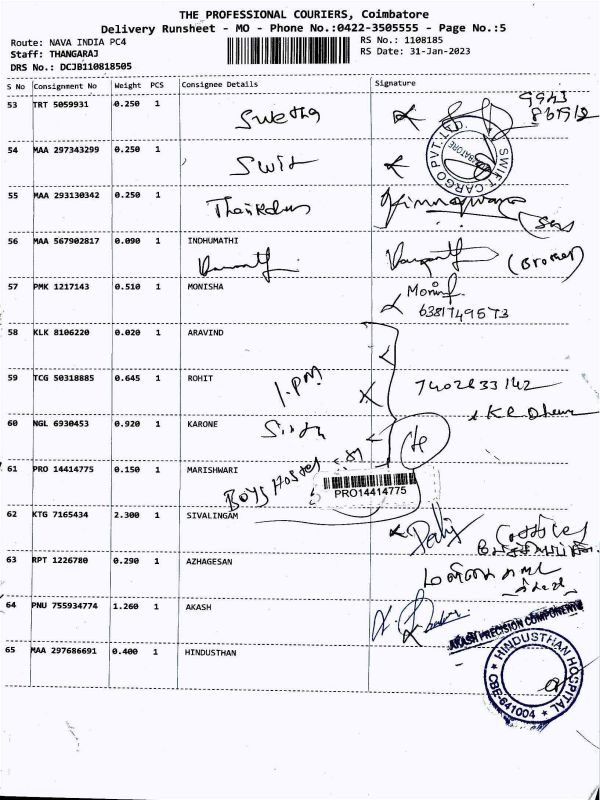 THE PROFESSIONAL COURIERS, Coimbatore
Delivery Runsheet - MO - Phone No.:0422-3505555 - Page No.:5
Route: NAVA INDIA PC4
RS No.: 1108185
Staff: THANGARAJ
RS Date: 31-Jan-2023
DRS No.: DCJB110818505
S No Consignment No Weight PCS Consignee Details Signature
53 TRT 5059931 0.250 1 Swetha
54 MAA 297343299 0.250 1
SWIFT CARGO PVT. LTD.
COIMBATORE
55 MAA 293130342 0.250 1
56 MAA 567902817 0.090 1 INDHUMATHI
(Brother)
57 PMK 1217143 0.510 1 MONISHA
6381749573
58 KLK 8106220 0.020 1 ARAVIND
59 TCG 50318885 0.645 1 ROHIT
1.PM
60 NGL 6930453 0.920 1 KARONE
61 PRO 14414775 0.150 1 MARISHWARI
Boys Hostel
PRO14414775
62 KTG 7165434 2.300 1 SIVALINGAM
63 RPT 1226780 0.290 1 AZHAGESAN
64 PNU 755934774 1.260 1 AKASH
AKASH PRECISION COMPONENTS
65 MAA 297686691 0.400 1 HINDUSTHAN
HINDUSTHAN HOSPITAL
CBE-641004